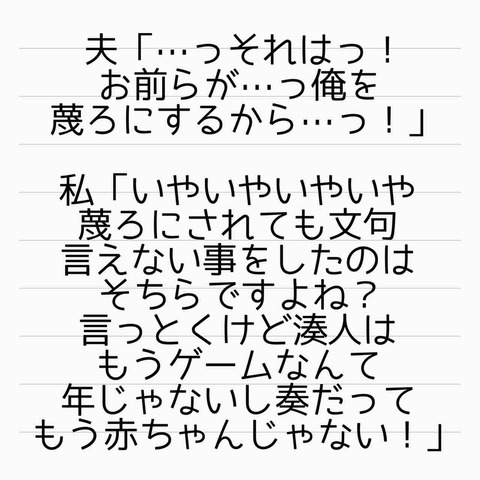 夫「…っそれはっ！
お前らが…っ俺を
蔑ろにするから…っ！」
私「いやいやいやいや
蔑ろにされても文句
言えない事をしたのは
そちらですよね？
言っとくけど湊人は
もうゲームなんて
年じゃないし奏だって
もう赤ちゃんじゃない！」